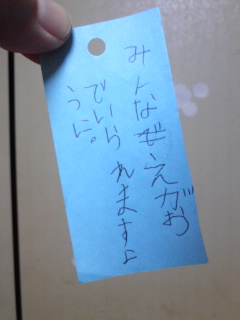 みんなえがお
でいられますよ
うに。